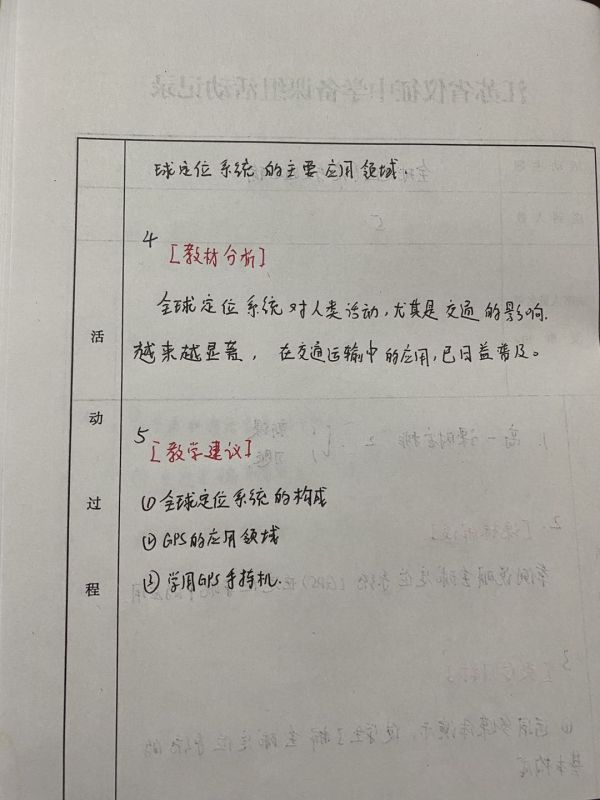 球定位系统的主要应用领域.
4
[教材分析]
全球定位系统对人类活动,尤其是交通的影响.
越来越显著,在交通运输中的应用,已日益普及。
5
[教学建议]
①全球定位系统的构成
②GPS的应用领域
③学用GPS手持机.
活
动
过
程